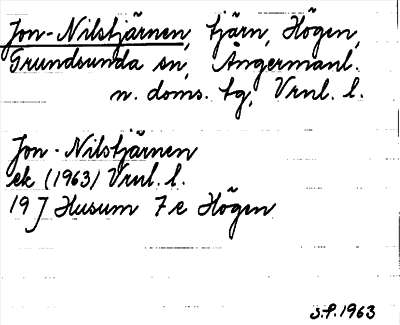 Jon-Nilstjärnen, tjärn, Högen,
Grundsunda sn, Ångermanl.
n. doms. tg, Vrnl. l.
Jon-Nilstjärnen
ek (1963) Vrnl. l.
19 J Husum 7e Högen
S.P. 1963